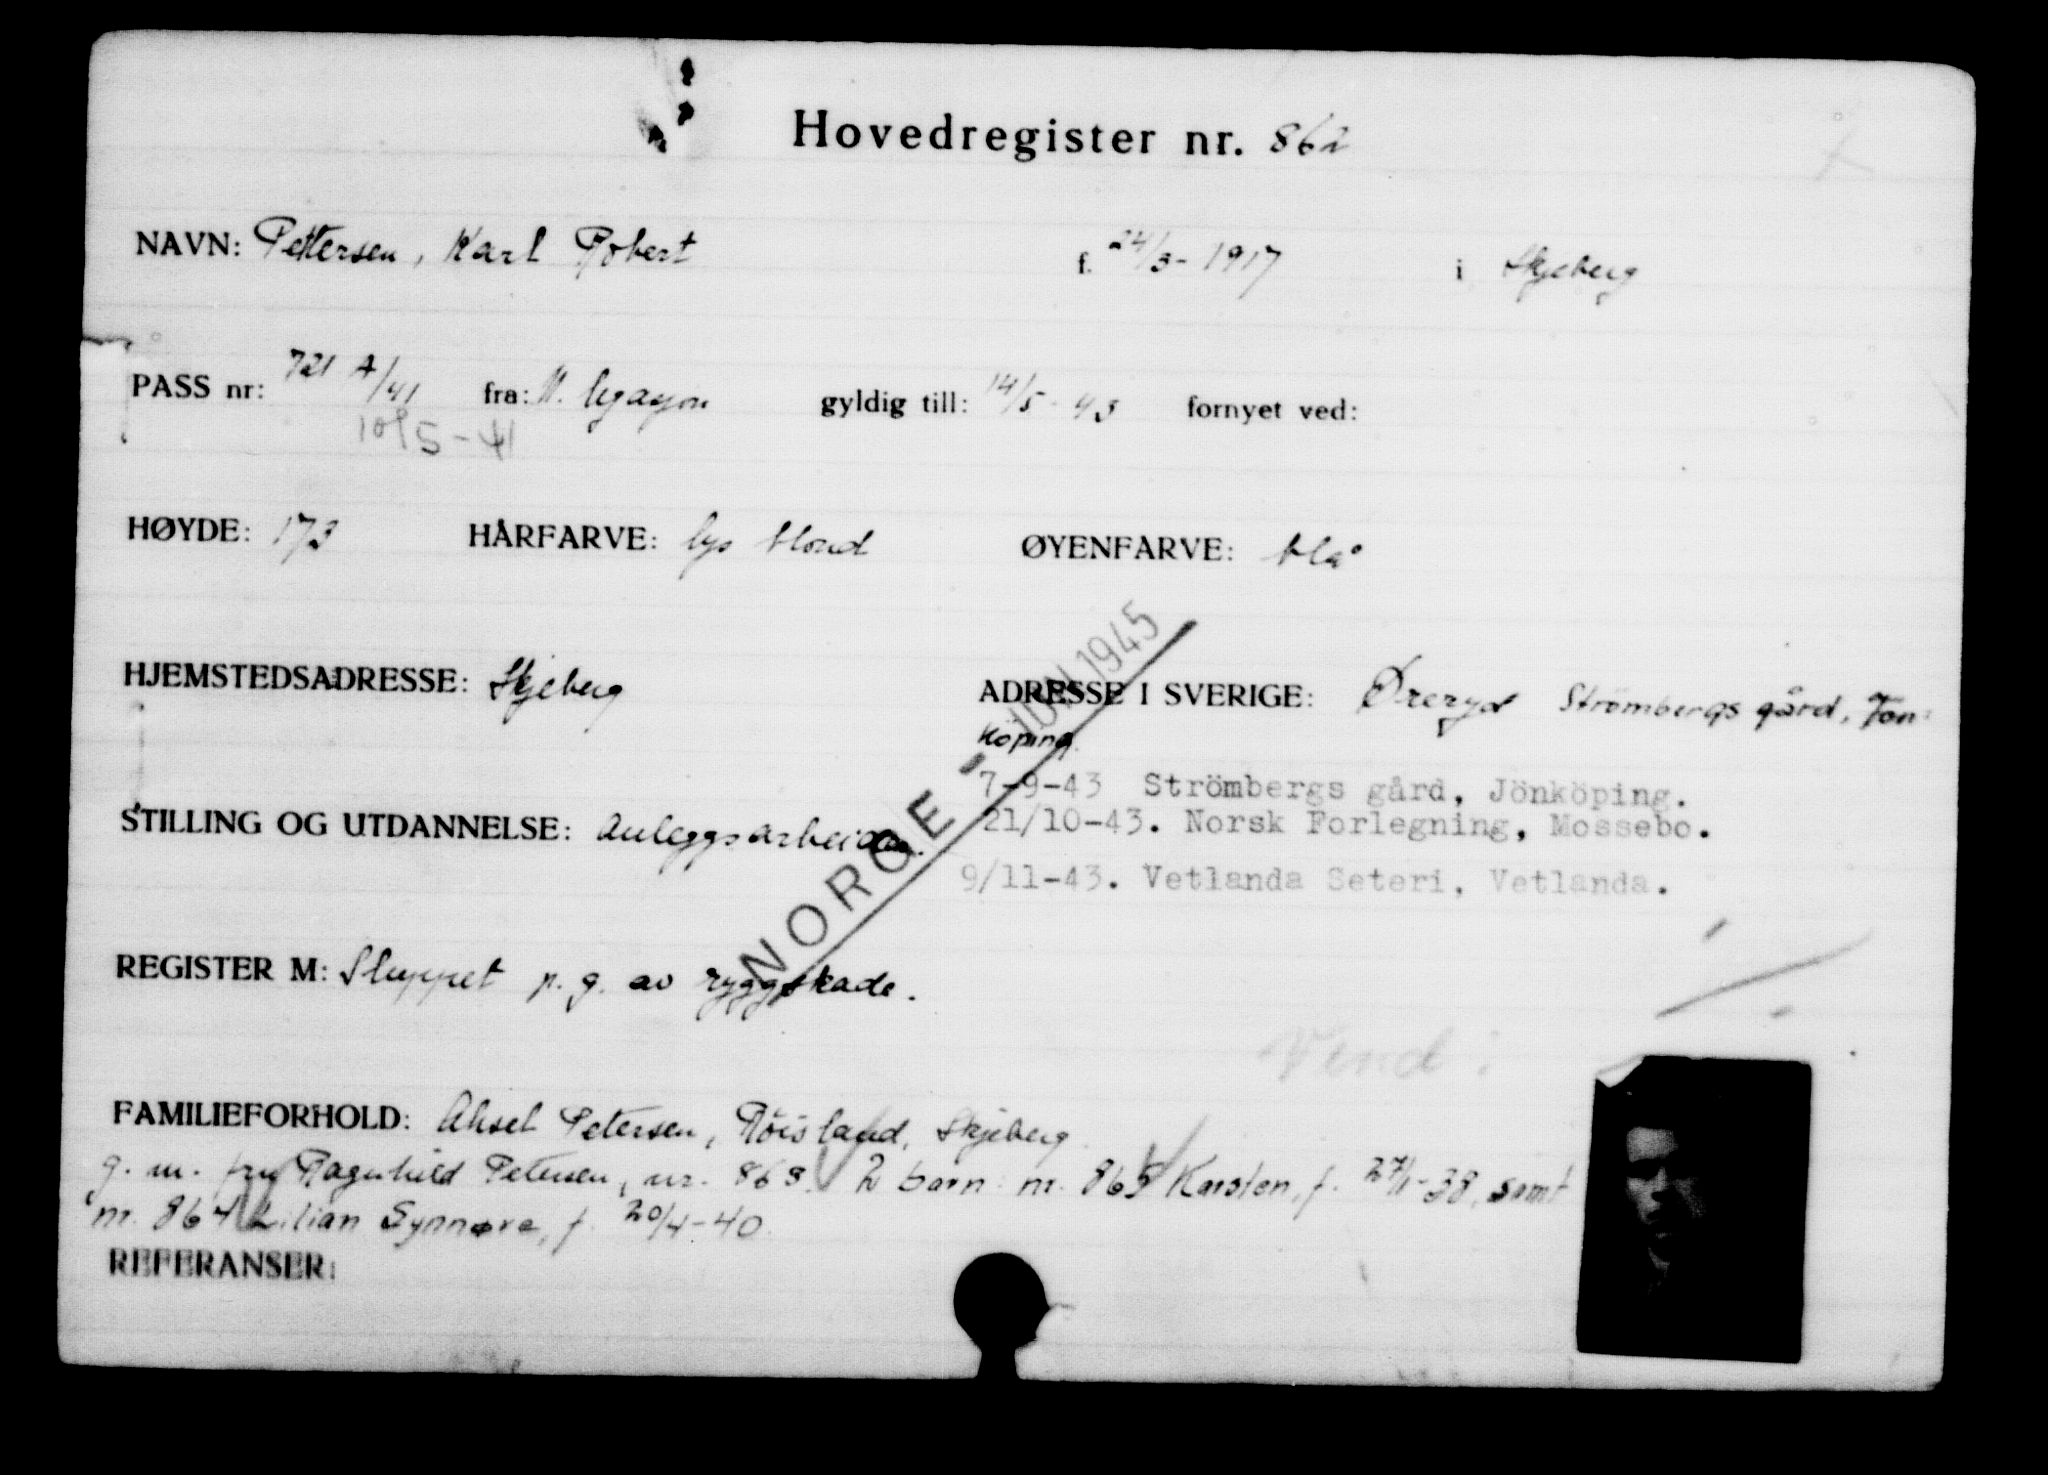 Hovedregister nr. 862
NAVN: Pettersen, Karl Robert f. 24/3-1917 i Skjeberg
PASS nr: 721 A/41 fra: gyldig till: 14/5-43 fornyet ved:
10/5-41
HØYDE: 173 HÅRFARVE: lys blond ØYENFARVE: blå
HJEMSTEDSADRESSE: Skjeberg ADRESSE I SVERIGE: Öreryd Strömbergs gård, Jön-
köping.
7-9-43 Strömbergs gård, Jönköping.
STILLING OG UTDANNELSE: Anleggsarbeider. 21/10-43. Norsk Forlegning, Mossebo.
9/11-43. Vetlanda Seteri, Vetlanda.
NORGE - JUNI 1945
REGISTER M: Sluppet p. g. av ryggskade.
Vend!
FAMILIEFORHOLD: Aksel Petersen, Röisland, Skjeberg.
g. m. fru Ragnhild Petersen, nr. 863. 2 barn: nr. 865 Karsten, f. 27/1-38, samt
nr. 864 Lilian Synnøve, f. 20/4-40.
REFERANSER: